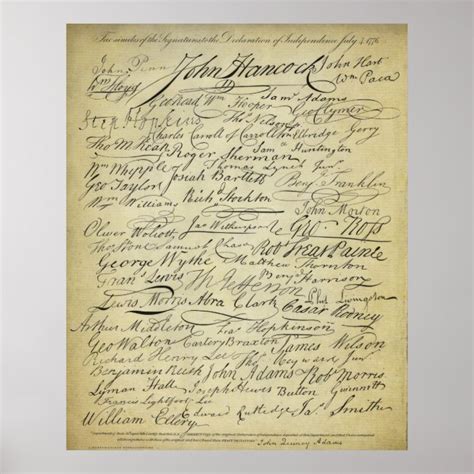 Fac similes of the Signatures to the Declaration of Independence July 4, 1776
John Penn John Hancock John Hart
Wm Floyd Wm Paca
Geo Read Wm Hooper Saml Adams Geo Clymer
Step Hopkins Thos Nelson
Charles Carroll of Carrollton Elbridge Gerry
Tho M Kean Roger Sherman Saml Huntington
Wm Whipple Thomas Lynch Junr
Geo Taylor Josiah Bartlett Benj Franklin
Wm Williams Richd Stockton John Morton
Oliver Wolcott Jno Witherspoon Geo Ross
Thos Stone Samuel Chase Robt Treat Paine
George Wythe Matthew Thornton
Frans Lewis Th Jefferson Benj Harrison
Lewis Morris Abra Clark Phil Livingston
Caesar Rodney
Arthur Middleton Fras Hopkinson
Geo Walton Carter Braxton James Wilson
Richard Henry Lee Thos Heyward Junr
Benjamin Rush John Adams Robt Morris
Lyman Hall Joseph Hewes Button Gwinnett
Francis Lightfoot Lee
William Ellery Edward Rutledge Jas Smith
John Quincy Adams